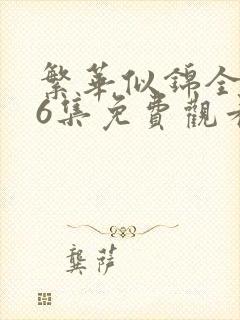 繁華似錦全
6集免費觀看
龔萨